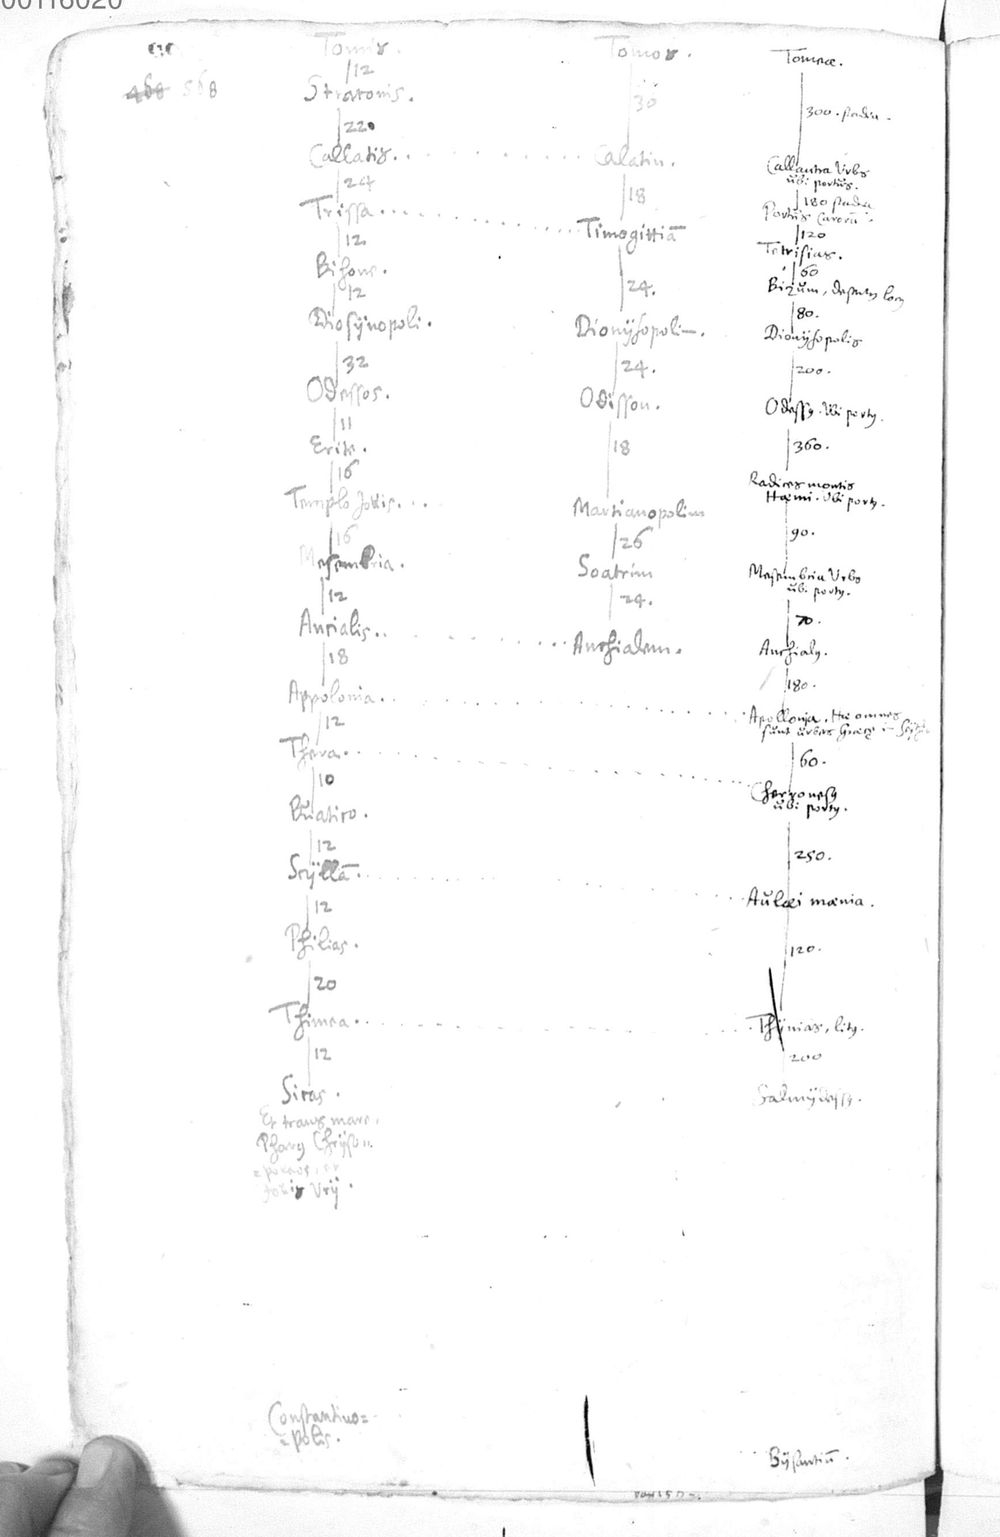 00116020
468 568
Tomis.
12
Stratonis.
220
Callatis.
24
Trissa
12
Bisone.
12
Diosÿnopoli.
32
Odessos.
11
Erite.
16
Templo Jovis.
16
Mesembria.
12
Ancialis.
18
Appolonia.
12
Thera.
10
Buatico.
12
Scÿllā.
12
Philias.
20
Thimea.
12
Siras.
Et trans mare.
Constantino=
=polis.
Tomos.
30
Calatin.
18
Timogittiā
24.
Dionÿsopoli–.
24.
Odisson.
18
Martianopolim
26
Soatrim
24.
Anchialem.
Tomeæ.
300. stadia.
Callantra Urbs
ubi portus.
180 stadia
Portus Carorū.
120
Tetrisias.
60
Bizum, desertus locus
80.
Dionÿsopolis
200.
Odessus. Ubi portus.
360.
Radices montis
Hæmi. Ubi portus.
90.
Mesembria Urbs
ubi portus.
70.
Anchialus.
180.
Apollonia. Hæ omnes
sunt urbes Græcæ in
60.
Cherronesus
ubi portus.
250.
Aulæi mænia.
120.
Thÿnias, litus.
200
Salmÿdessus.
Bÿsantiū.